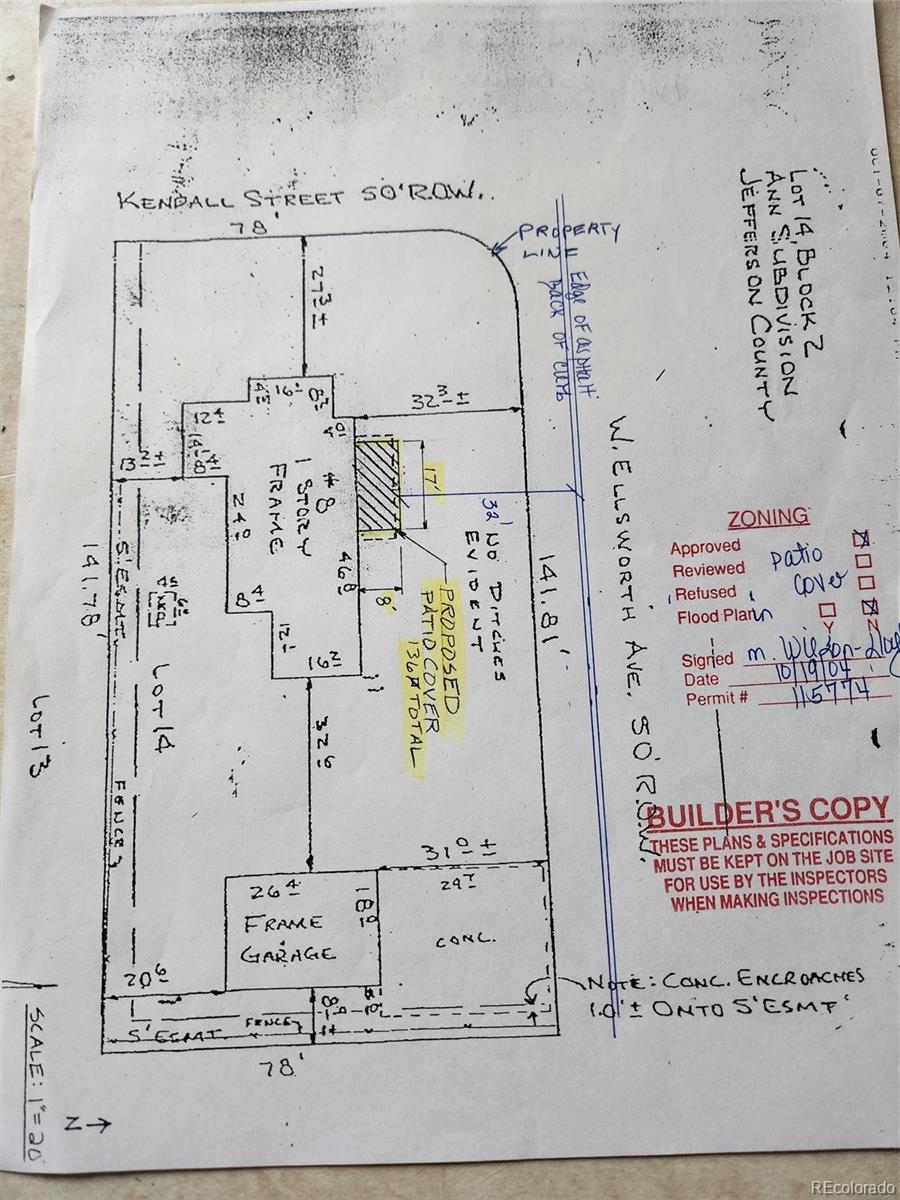 KENDALL STREET 50' R.O.W.
78'
PROPERTY
LINE
Edge of asphalt
back of curb
LOT 14, BLOCK 2
ANN SUBDIVISION
JEFFERSON COUNTY
27 3 ±
32 3 ±
12 4
14 4
24 0
46 8
8 4
12 1
17'
8'
1 STORY
FRAME
32'
NO DITCHES
EVIDENT
PROPOSED
PATIO COVER
136 # TOTAL
W. ELLSWORTH AVE. 50' R.O.W.
141.78'
141.81'
5' ESMT
LOT 14
LOT 13
FENCE
32 6
ZONING
Approved
Reviewed
Refused
Flood Plain
Y
N
patio
cover
Signed
Date 10/19/04
Permit # 115774
BUILDER'S COPY
THESE PLANS & SPECIFICATIONS
MUST BE KEPT ON THE JOB SITE
FOR USE BY THE INSPECTORS
WHEN MAKING INSPECTIONS
31 0 ±
29 7
26 4
18 0
FRAME
GARAGE
CONC.
20 6
5' ESMT
FENCE
78'
NOTE: CONC. ENCROACHES
1.0' ± ONTO 5' ESMT
SCALE: 1"=20'
N →
REcolorado